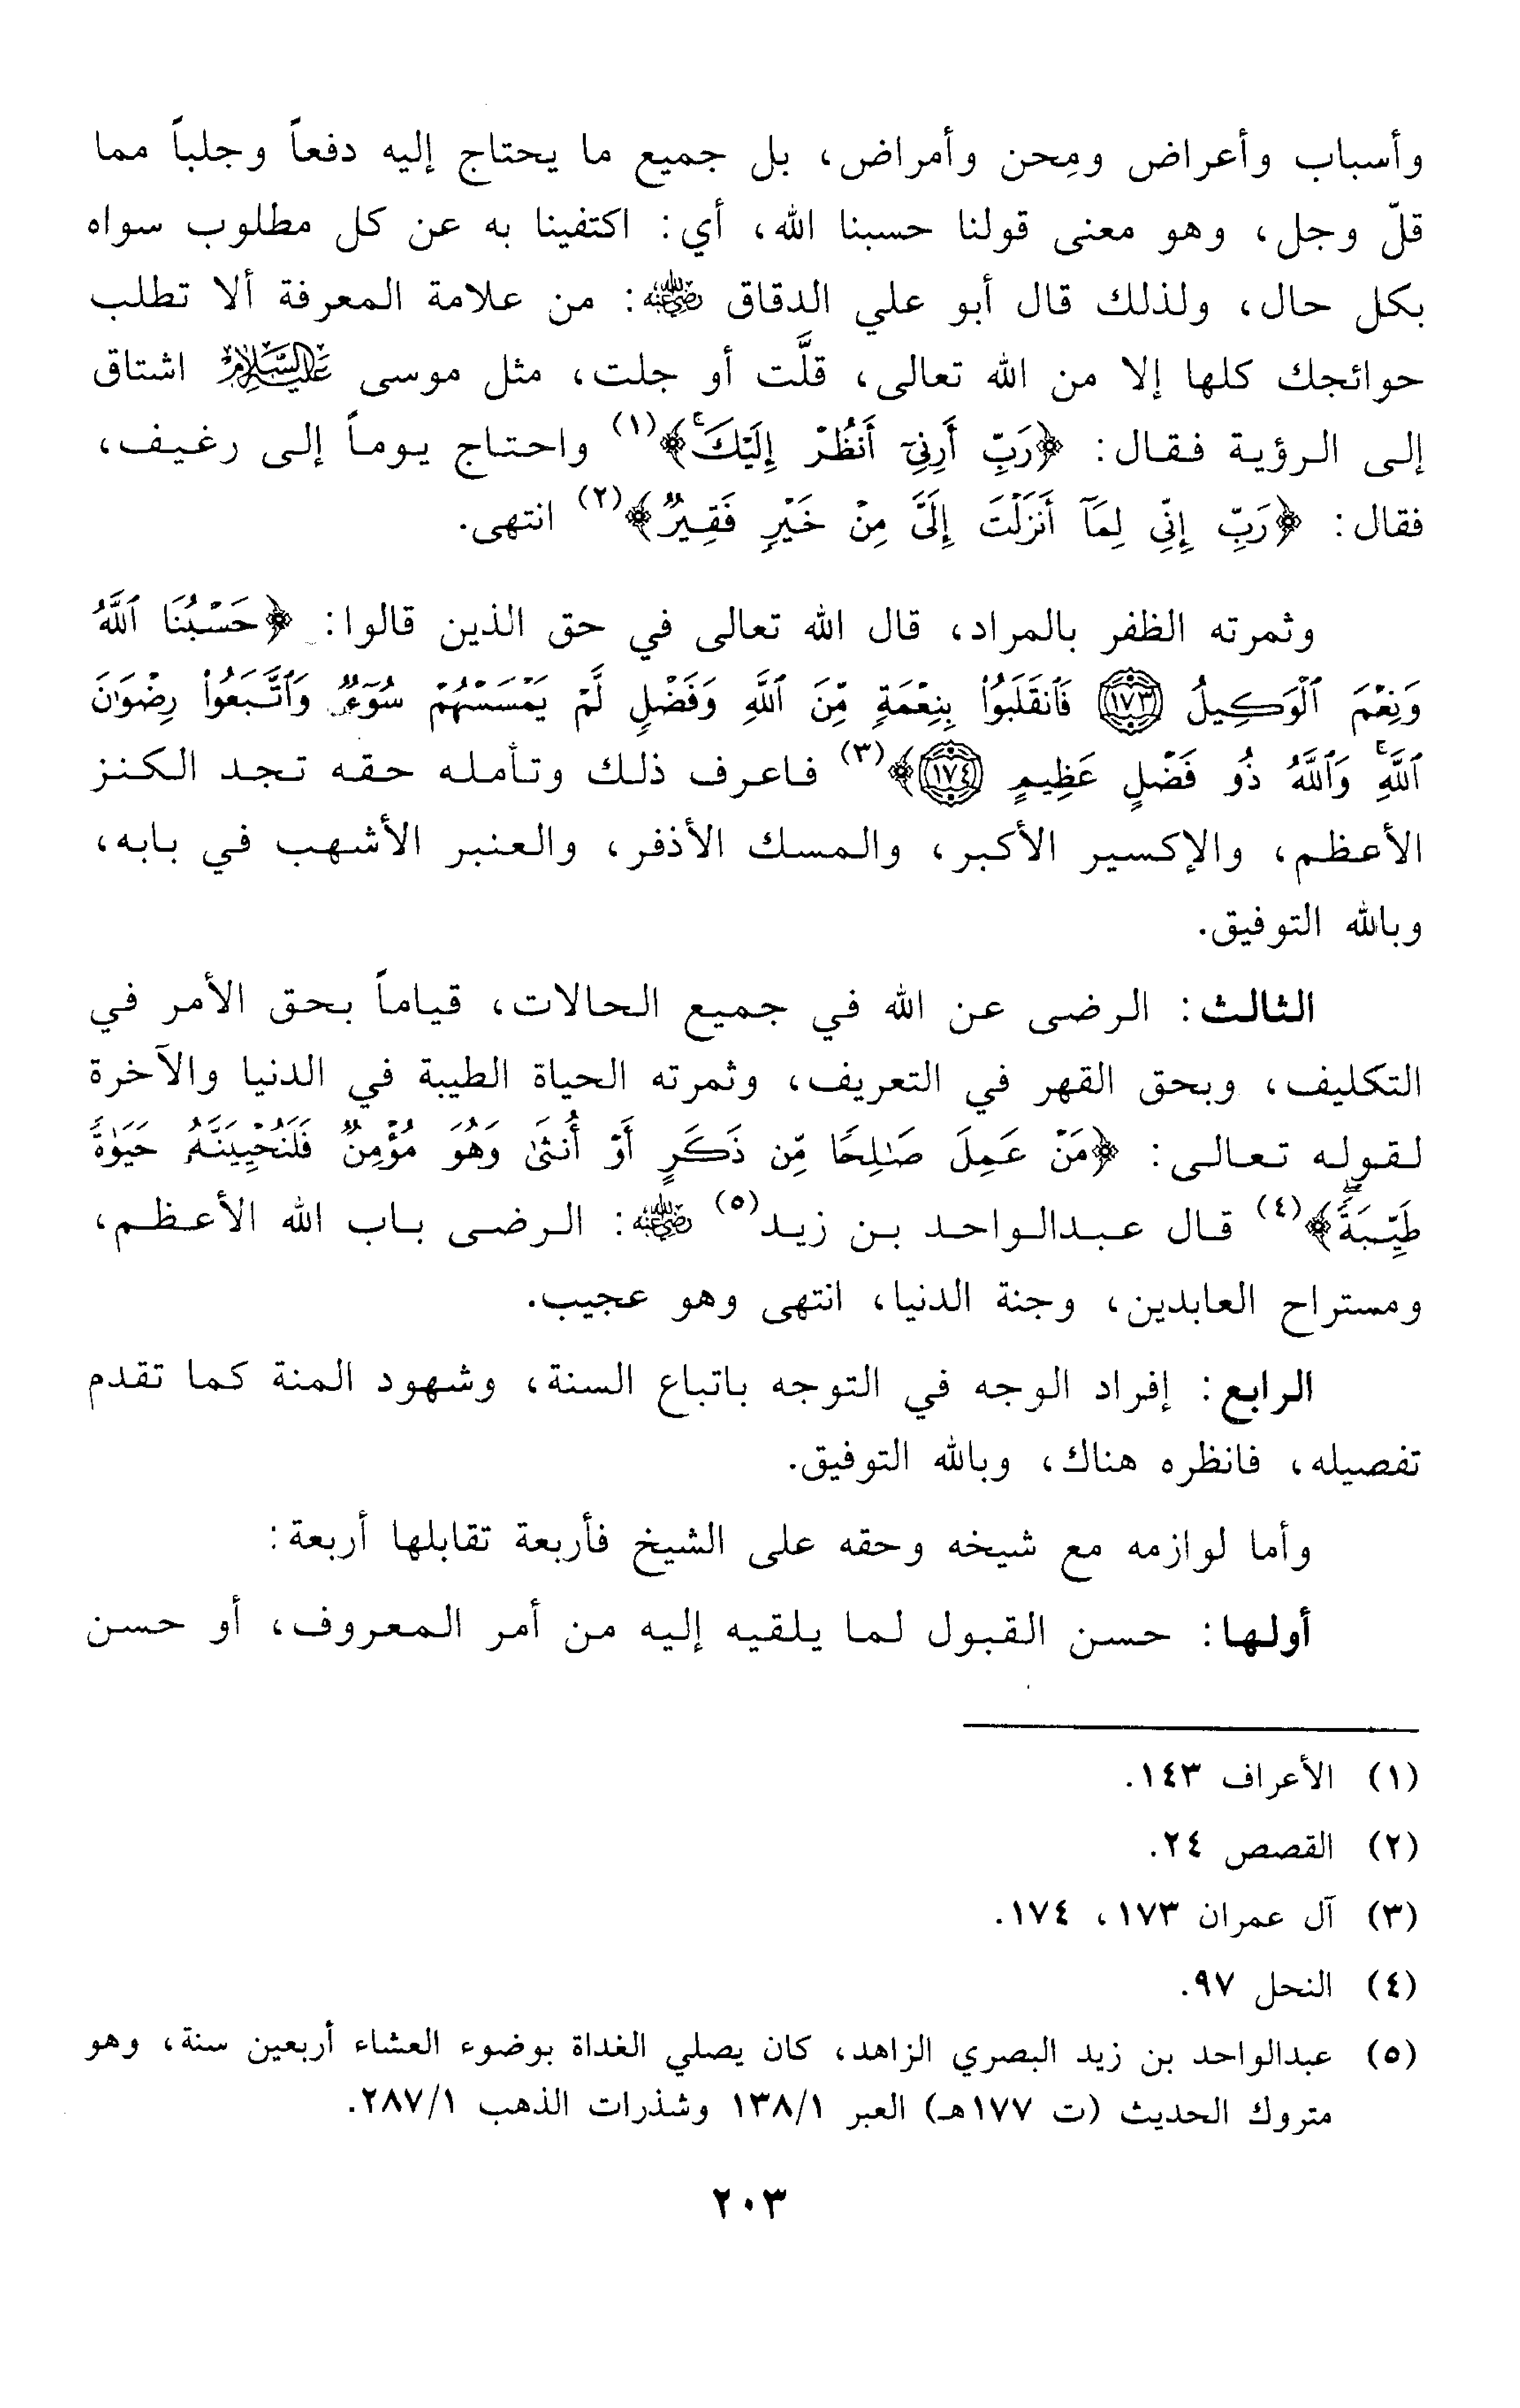 وأسباب وأعراض ومِحن وأمراض، بل جميع ما يحتاج إليه دفعاً وجلباً مما
قلّ وجل، وهو معنى قولنا حسبنا الله، أي: اكتفينا به عن كل مطلوب سواه
بكل حال، ولذلك قال أبو علي الدقاق رضي الله عنه: من علامة المعرفة ألا تطلب
حوائجك كلها إلا من الله تعالى، قلَّت أو جلت، مثل موسى عليه السلام اشتاق
إلى الرؤية فقال: ﴿رَبِّ أَرِنِيٓ أَنظُرۡ إِلَيۡكَۚ﴾(١) واحتاج يوماً إلى رغيف،
فقال: ﴿رَبِّ إِنِّي لِمَآ أَنزَلۡتَ إِلَيَّ مِنۡ خَيۡرٖ فَقِيرٞ﴾(٢) انتهى.
وثمرته الظفر بالمراد، قال الله تعالى في حق الذين قالوا: ﴿حَسۡبُنَا ٱللَّهُ
وَنِعۡمَ ٱلۡوَكِيلُ ١٧٣ فَٱنقَلَبُواْ بِنِعۡمَةٖ مِّنَ ٱللَّهِ وَفَضۡلٖ لَّمۡ يَمۡسَسۡهُمۡ سُوٓءٞ وَٱتَّبَعُواْ رِضۡوَٰنَ
ٱللَّهِۗ وَٱللَّهُ ذُو فَضۡلٍ عَظِيمٍ ١٧٤﴾(٣) فاعرف ذلك وتأمله حقه تجد الكنز
الأعظم، والإكسير الأكبر، والمسك الأذفر، والعنبر الأشهب في بابه،
وبالله التوفيق.
الثالث: الرضى عن الله في جميع الحالات، قياماً بحق الأمر في
التكليف، وبحق القهر في التعريف، وثمرته الحياة الطيبة في الدنيا والآخرة
لقوله تعالى: ﴿مَنۡ عَمِلَ صَٰلِحٗا مِّن ذَكَرٍ أَوۡ أُنثَىٰ وَهُوَ مُؤۡمِنٞ فَلَنُحۡيِيَنَّهُۥ حَيَوٰةٗ
طَيِّبَةٗۖ﴾(٤) قال عبدالواحد بن زيد(٥) رضي الله عنه: الرضى باب الله الأعظم،
ومستراح العابدين، وجنة الدنيا، انتهى وهو عجيب.
الرابع: إفراد الوجه في التوجه باتباع السنة، وشهود المنة كما تقدم
تفصيله، فانظره هناك، وبالله التوفيق.
وأما لوازمه مع شيخه وحقه على الشيخ فأربعة تقابلها أربعة:
أولها: حسن القبول لما يلقيه إليه من أمر المعروف، أو حسن
(١) الأعراف ١٤٣.
(٢) القصص ٢٤.
(٣) آل عمران ١٧٣، ١٧٤.
(٤) النحل ٩٧.
(٥) عبدالواحد بن زيد البصري الزاهد، كان يصلي الغداة بوضوء العشاء أربعين سنة، وهو
متروك الحديث (ت ١٧٧هـ) العبر ١٣٨/١ وشذرات الذهب ٢٨٧/١.
٢٠٣